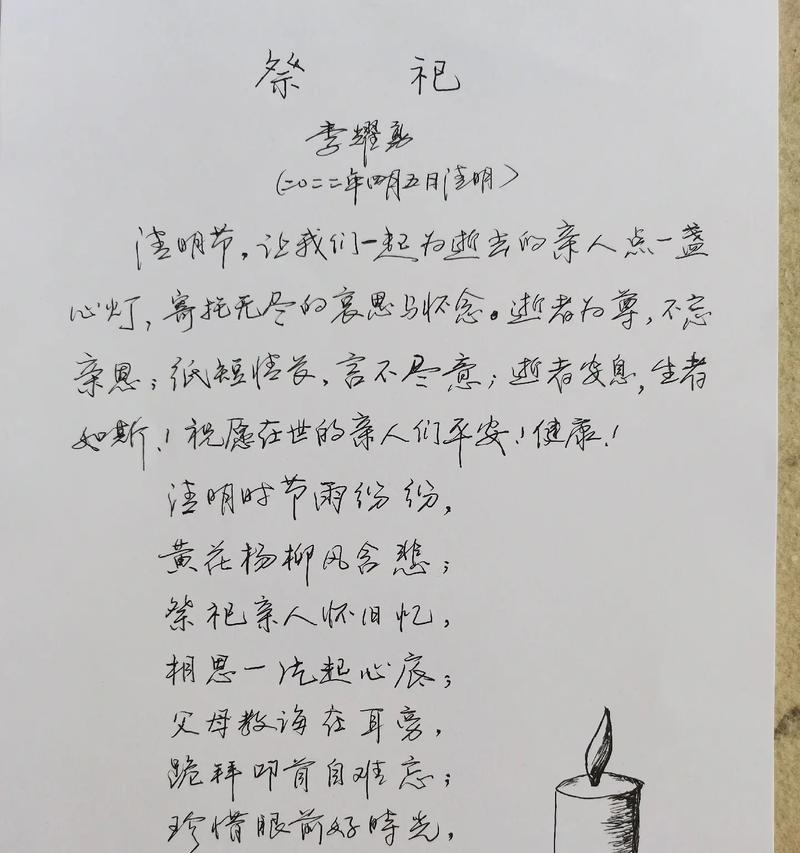 祭 祀
李耀
(二〇二二年四月五日清明)
清明节，让我们一起为逝去的亲人点一盏
心灯，寄托无尽的哀思与怀念。逝者为尊，不忘
亲恩；纸短情长，言不尽意；逝者安息，生者
如斯！祝愿在世的亲人们平安！健康！
清明时节雨纷纷，
黄花杨柳风含悲；
祭祀亲人怀旧忆，
相思一次起心底；
父母教诲在耳旁，
跪拜叩首自难忘；
珍惜眼前好時光，